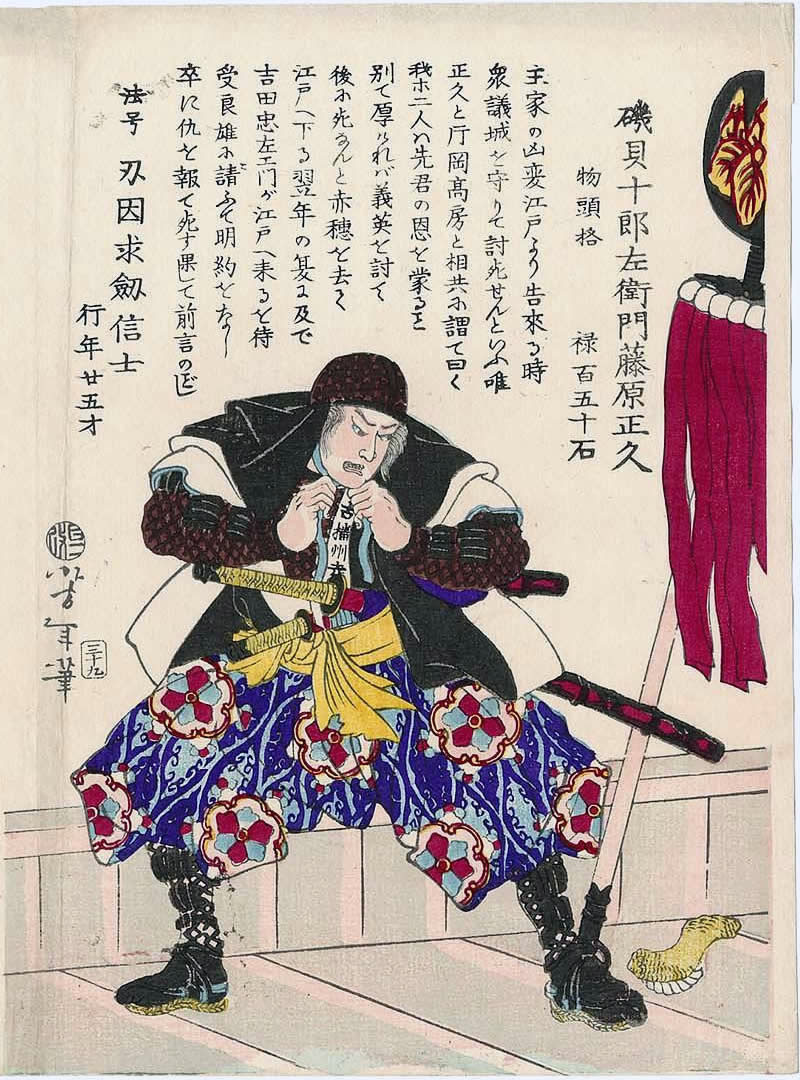 磯貝十郎左衛門藤原正久
物頭格　禄百五十石
主家の凶変江戸より告来る時
衆議城を守りて討死せんといふ唯
正久と片岡髙房と相共に謂て曰く
我ホ二人ハ先君の恩を蒙る
別て厚けれバ義英を討て
後に死なんと赤穂を去て
江戸へ下る翌年の夏に及で
吉田忠左エ門が江戸へ来るを待
受良雄に請ふて明約をなし
卒に仇を報て死す果して前言の
法号 刃因求劔信士
行年廿五才
吉
播州赤
芳年筆